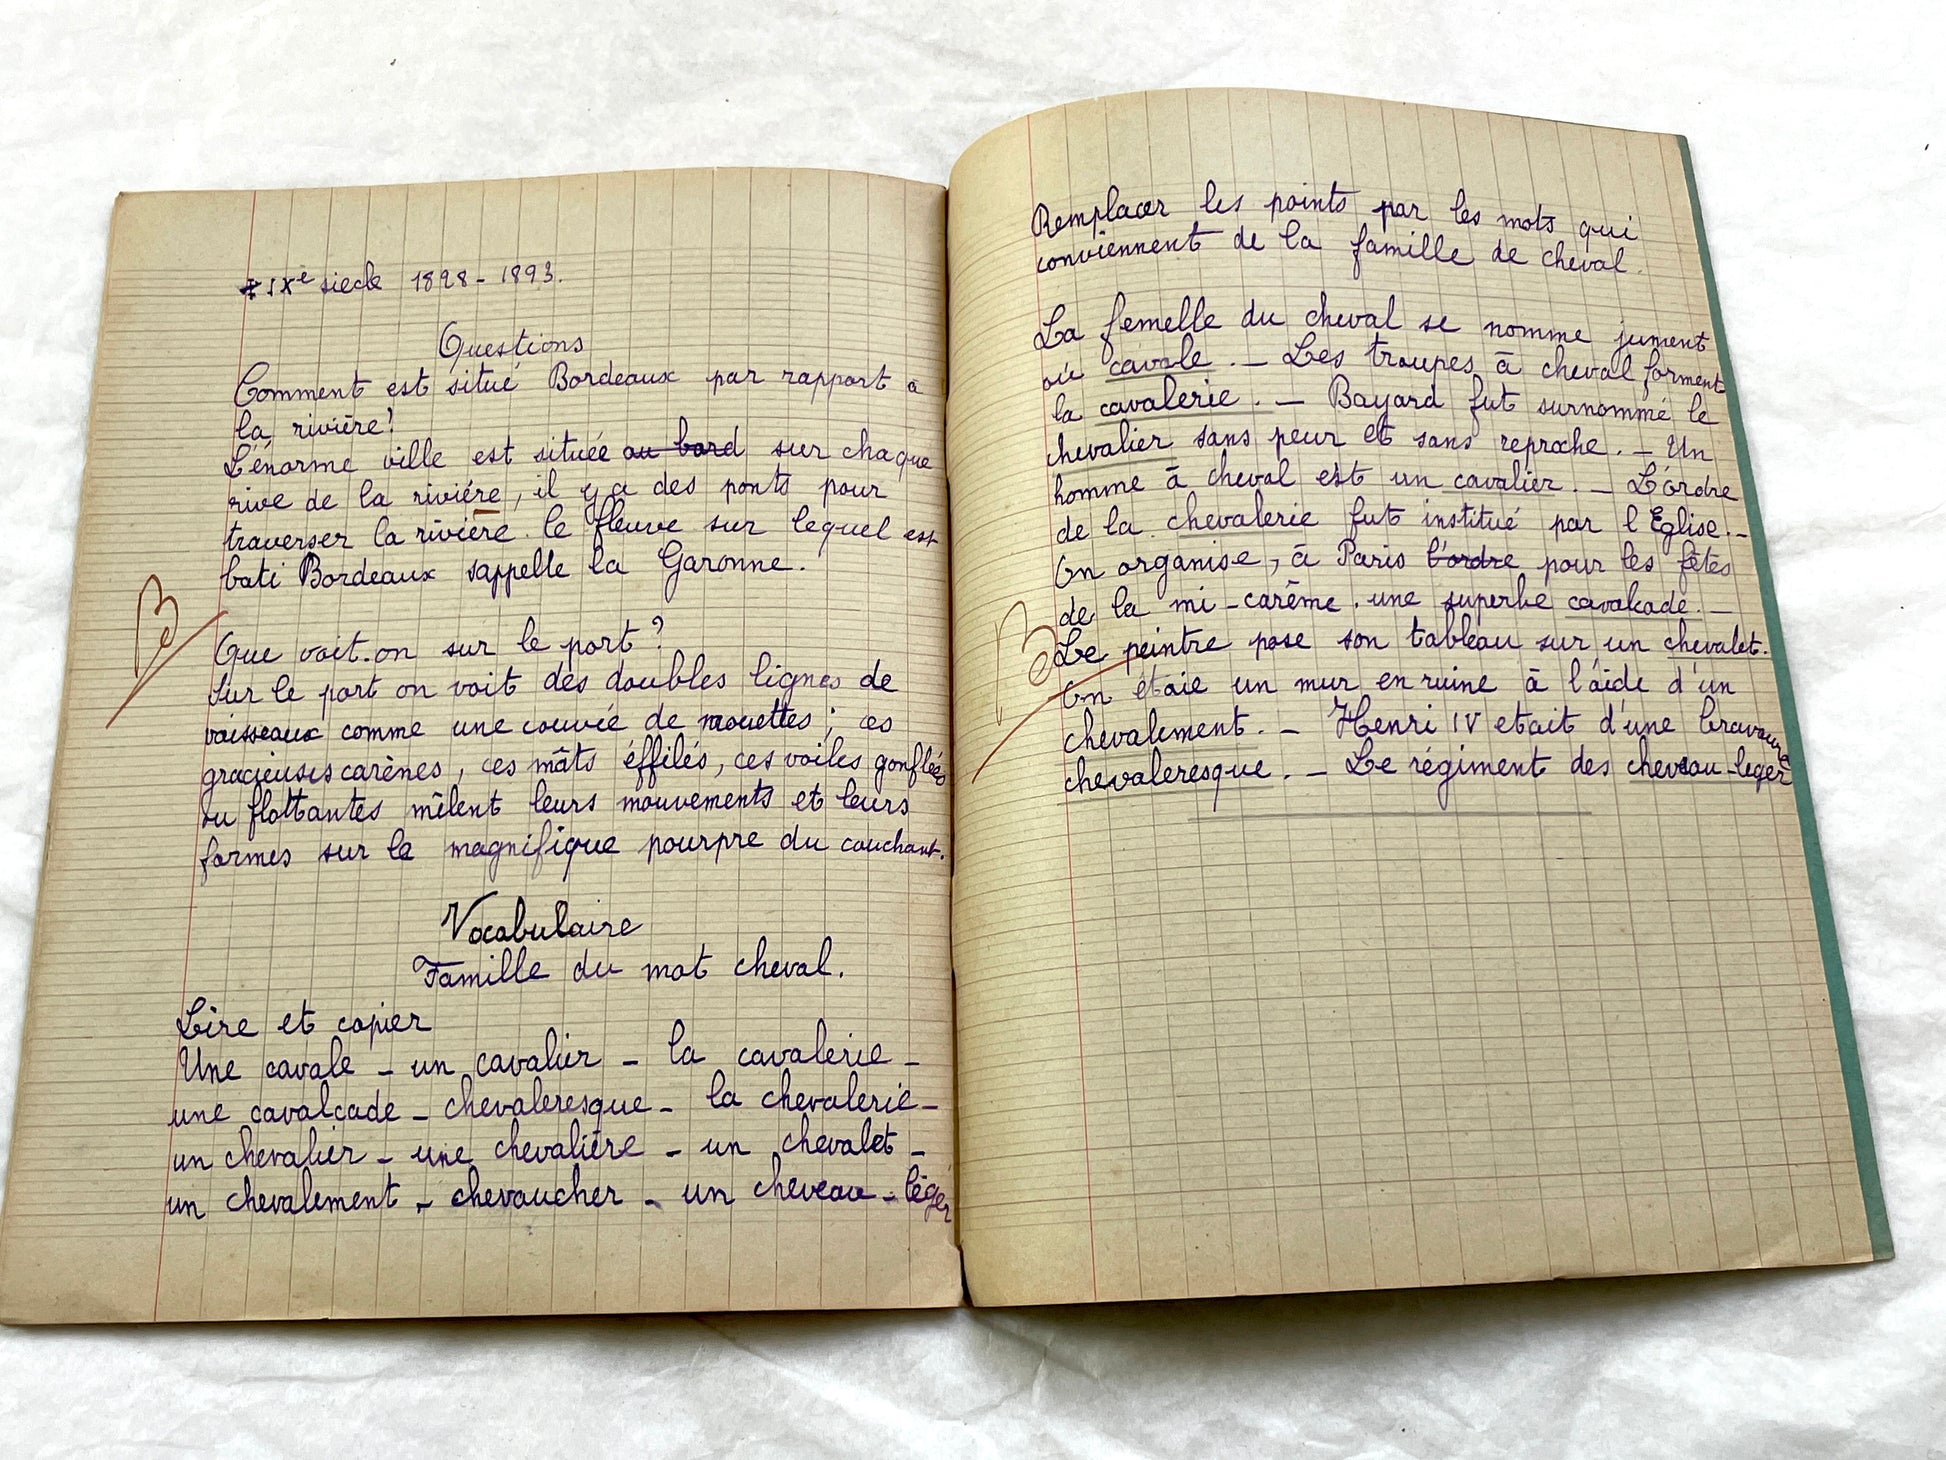 XIXe siecle 1828 - 1893.
Questions
Comment est situé Bordeaux par rapport a
la rivière?
L'énorme ville est située au bord sur chaque
rive de la riviére, il y a des ponts pour
traverser la rivière. le fleuve sur lequel est
bati Bordeaux s'appelle la Garonne.
Que voit-on sur le port?
Sur le port on voit des doubles lignes de
vaisseaux comme une couvée de mouettes; ces
gracieuses carènes, ces mâts éffilés, ces voiles gonflées
ou flottantes mêlent leurs mouvements et leurs
formes sur le magnifique pourpre du couchant.
B
Vocabulaire
Famille du mot cheval.
Lire et copier
Une cavale - un cavalier - la cavalerie -
une cavalcade - chevaleresque - la chevalerie -
un chevalier - une chevalière - un chevalet -
un chevalement - chevaucher - un cheveau-léger
Remplacer les points par les mots qui
conviennent de la famille de cheval.
La femelle du cheval se nomme jument
ou cavale. - Les troupes à cheval forment
la cavalerie. - Bayard fut surnommé le
chevalier sans peur et sans reproche. - Un
homme à cheval est un cavalier. - L'ordre
de la chevalerie fut institué par l'Eglise. -
On organise, à Paris l'ordre pour les fêtes
de la mi-carême. une superbe cavalcade. -
Le peintre pose son tableau sur un chevalet.
On étaie un mur en ruine à l'aide d'un
chevalement. - Henri IV etait d'une bravoure
chevaleresque. - Le régiment des cheveau-leger
B